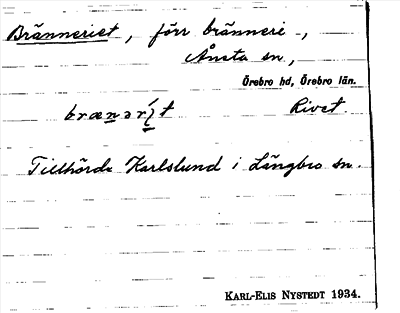 Bränneriet, förr bränneri -,
Ånsta sn,
Örebro hd, Örebro län.
Rivet.
Tillhörde Karlslund i Längbro sn.
KARL-ELIS NYSTEDT 1934.